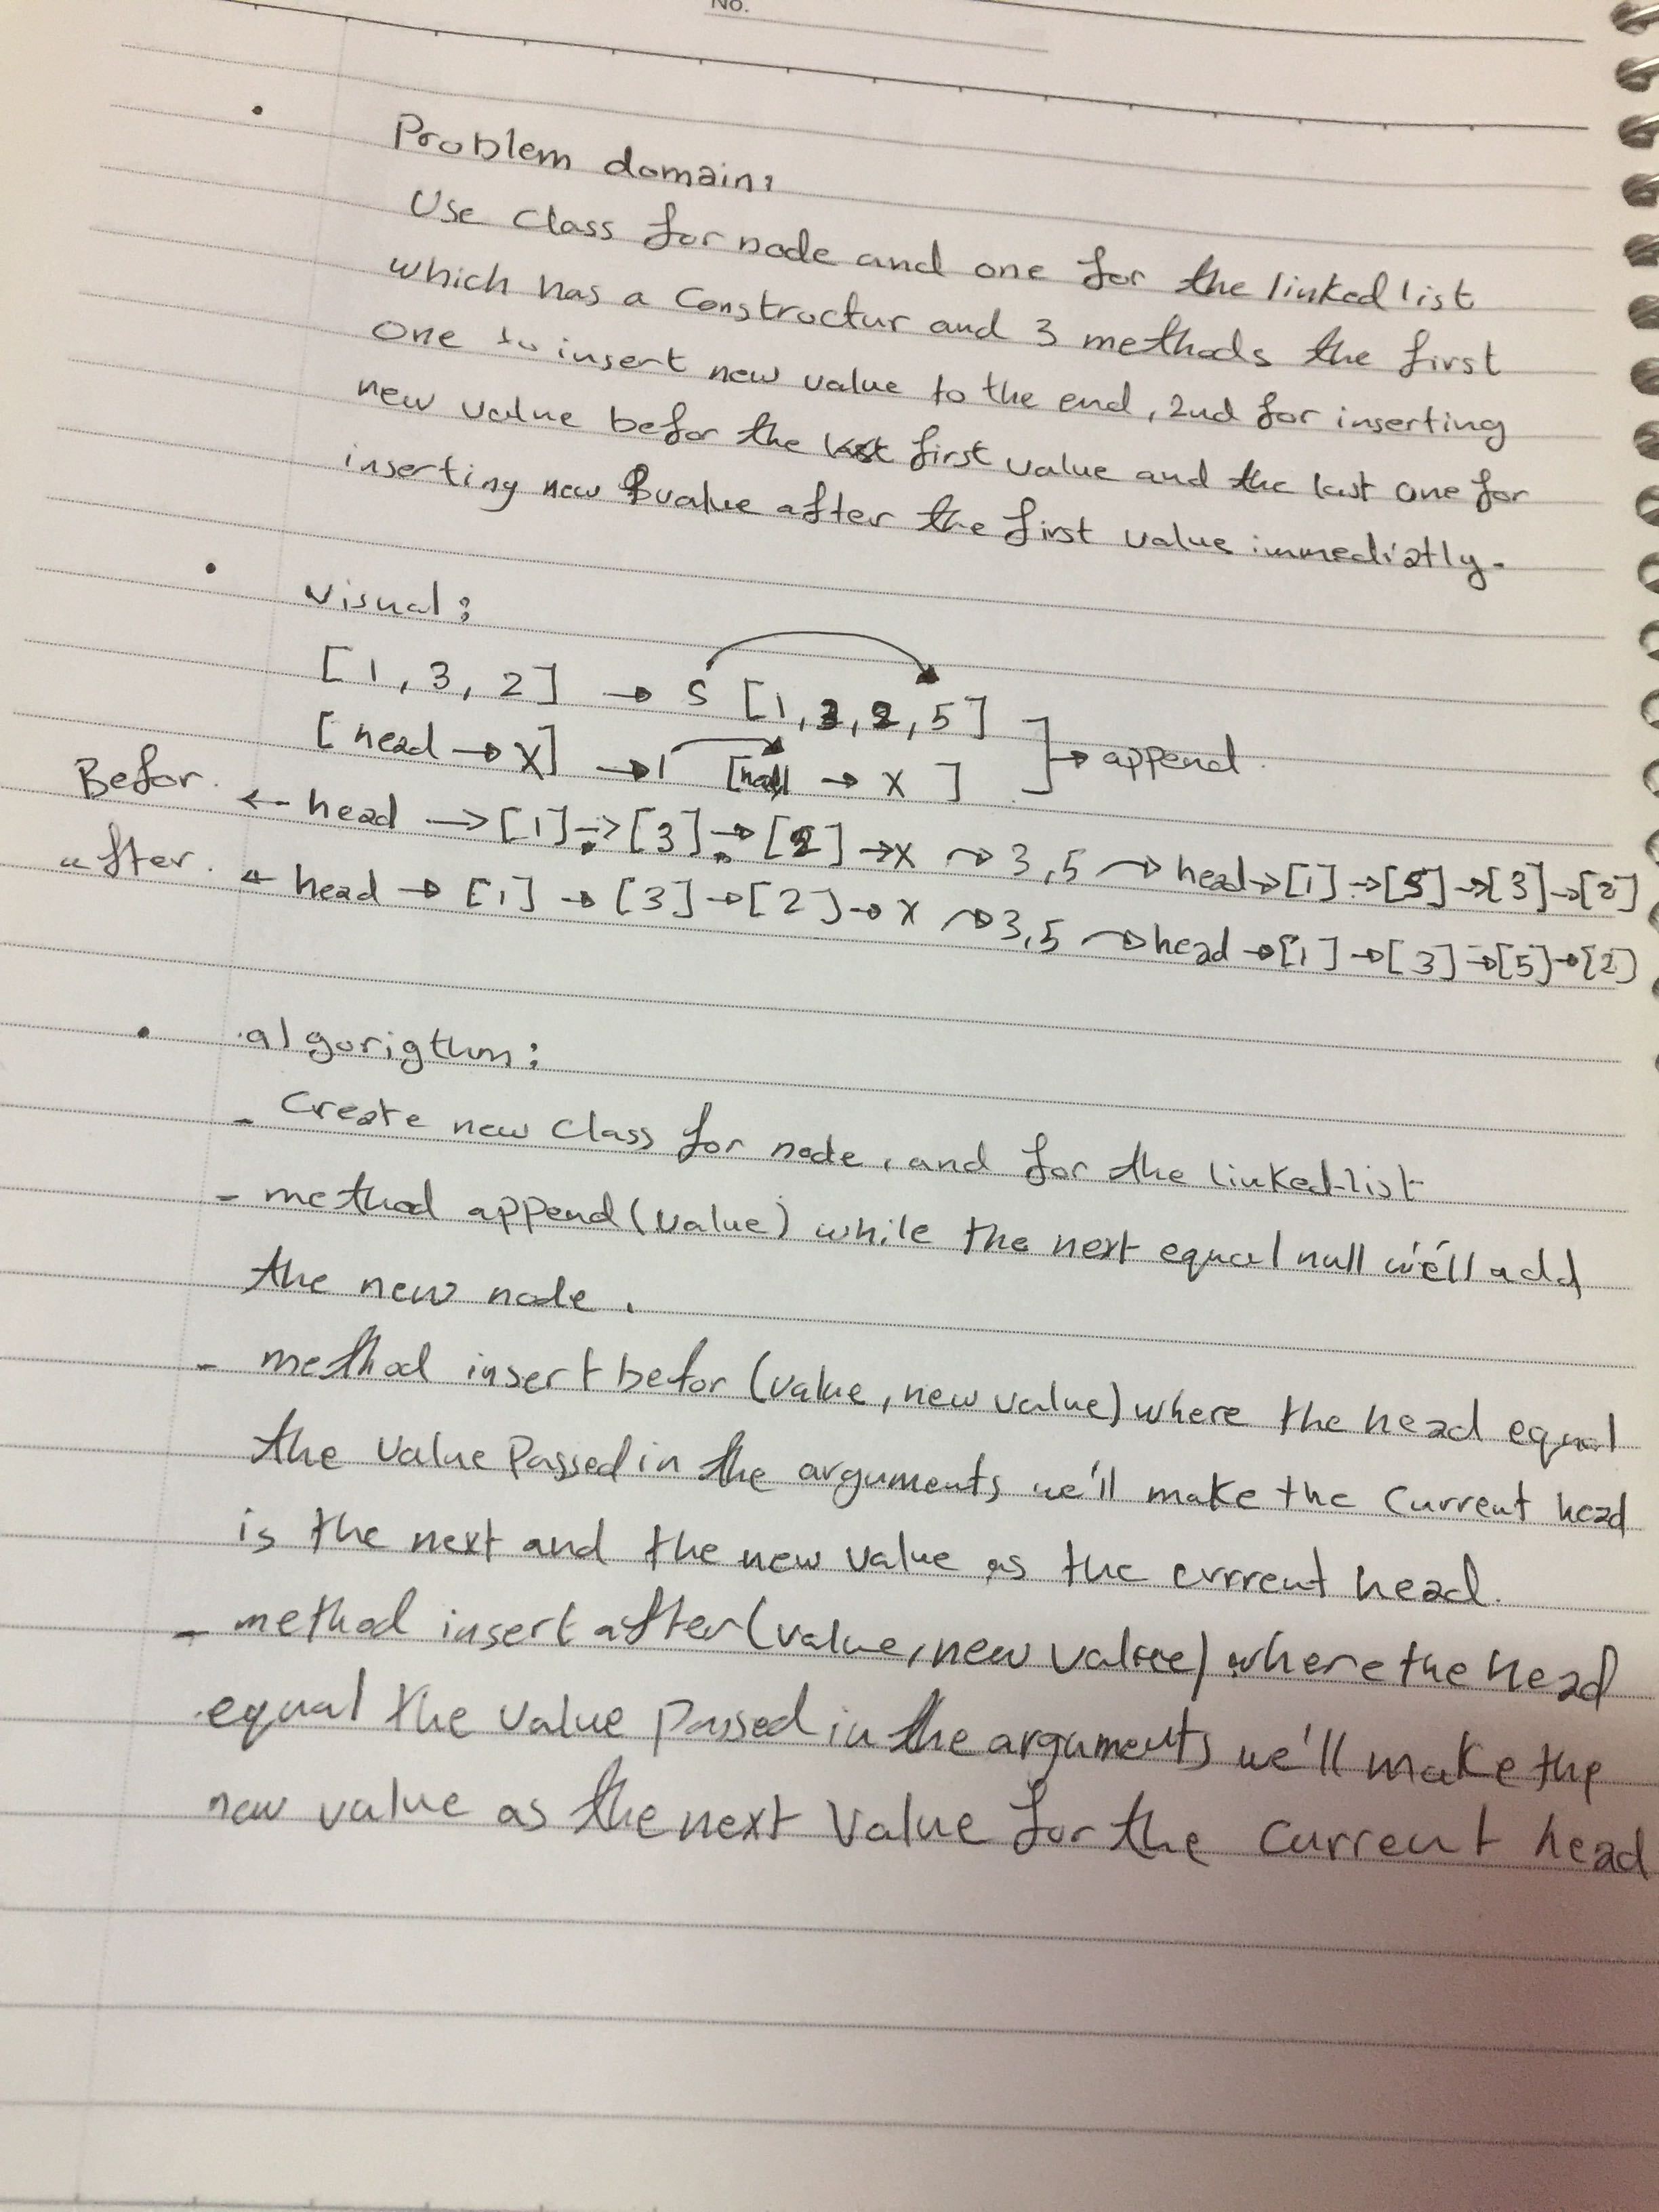 No.
• Problem domain:
Use class for node and one for the linked list
which has a constructur and 3 methods the first
one to insert new value to the end, 2nd for inserting
new value befor the first value and the last one for
inserting new value after the first value immediatly.
• Visual:
[1, 3, 2] → 5 [1, 3, 2, 5]
[head → X] → 1 [null → X] ] → append.
Befor. ← head → [1] → [3] → [2] → X → 3,5 → head → [1] → [5] → [3] → [2]
after. ← head → [1] → [3] → [2] → X → 3,5 → head → [1] → [3] → [5] → [2]
• algorigthm:
- Create new class for node, and for the linked-list
- method append(value) while the next equal null we'll add
the new node.
- method insert befor (value, new value) where the head equal
the value passed in the arguments we'll make the current head
is the next and the new value as the current head.
- method insert after (value, new value) where the head
equal the value passed in the arguments we'll make the
new value as the next value for the current head